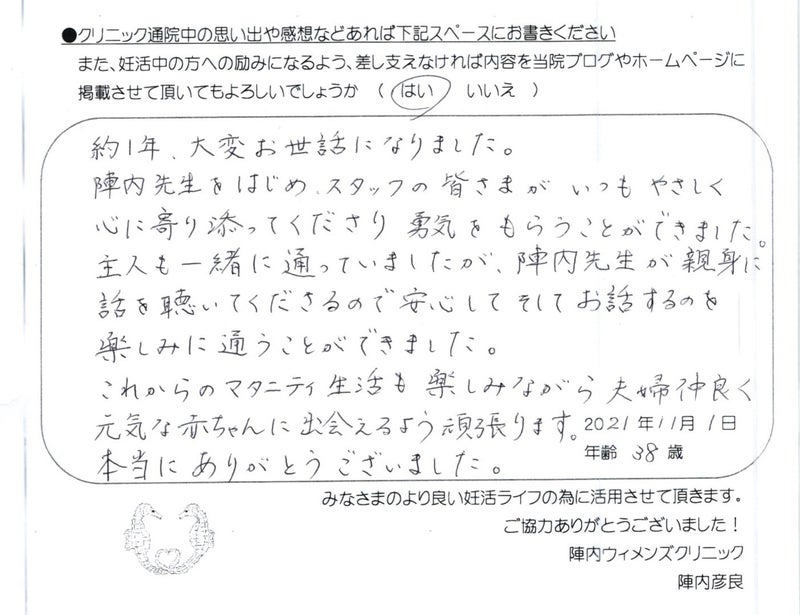 ●クリニック通院中の思い出や感想などあれば下記スペースにお書きください
また、妊活中の方への励みになるよう、差し支えなければ内容を当院ブログやホームページに
掲載させて頂いてもよろしいでしょうか ( はい いいえ )
約1年、大変お世話になりました。
陣内先生をはじめ、スタッフの皆さまが いつも やさしく
心に寄り添ってくださり 勇気をもらうことができました。
主人も一緒に通っていましたが、陣内先生が親身に
話を聴いてくださるので安心して そして お話するのを
楽しみに通うことができました。
これからのマタニティ生活も楽しみながら 夫婦仲良く
元気な赤ちゃんに出会えるよう頑張ります。
本当にありがとうございました。
2021年11月1日
年齢 38 歳
みなさまのより良い妊活ライフの為に活用させて頂きます。
ご協力ありがとうございました!
陣内ウィメンズクリニック
陣内彦良